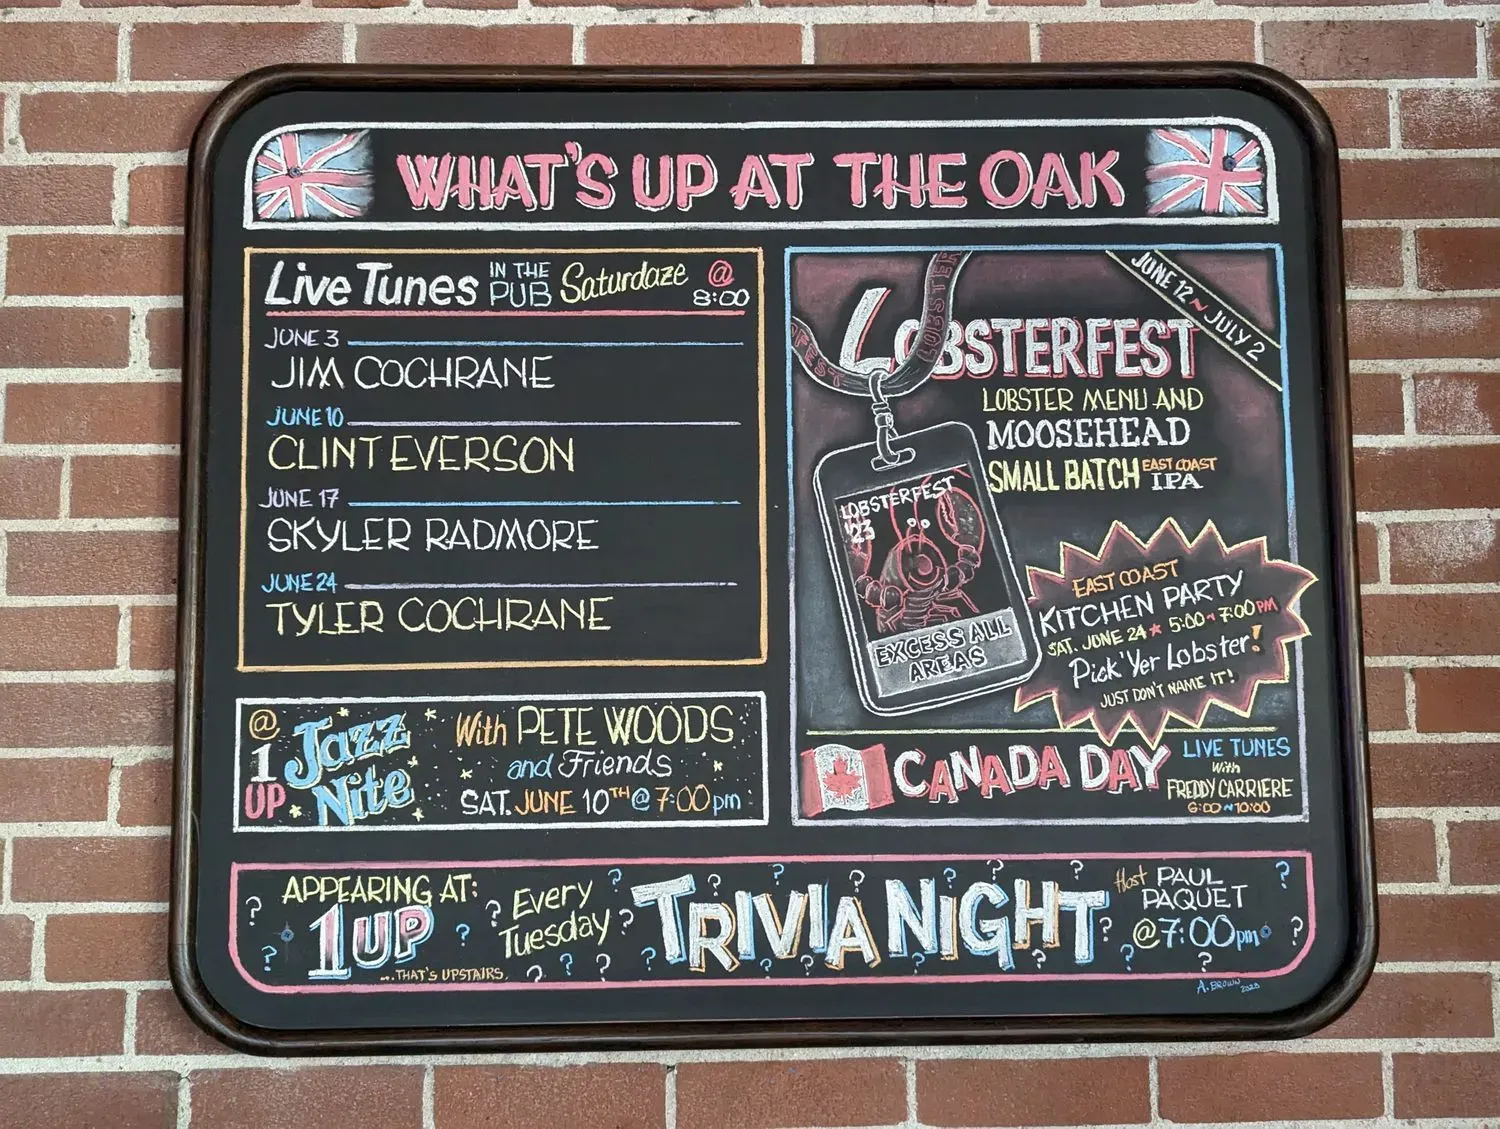 WHAT'S UP AT THE OAK
Live Tunes IN THE PUB Saturdaze @ 8:00
JUNE 3
JIM COCHRANE
JUNE 10
CLINT EVERSON
JUNE 17
SKYLER RADMORE
JUNE 24
TYLER COCHRANE
@ 1 UP
Jazz Nite
With PETE WOODS
and Friends
SAT. JUNE 10TH @ 7:00pm
JUNE 12 ~ JULY 2
LOBSTER
FEST
LOBSTERFEST
LOBSTER MENU AND
MOOSEHEAD
SMALL BATCH EAST COAST IPA
LOBSTERFEST
'23
EXCESS ALL
AREAS
EAST COAST
KITCHEN PARTY
SAT. JUNE 24 ★ 5:00 ~ 7:00PM
Pick 'Yer Lobster!
JUST DON'T NAME IT!
CANADA DAY
LIVE TUNES
With
FREDDY CARRIERE
6:00 ~ 10:00
APPEARING AT:
1UP
...THAT'S UPSTAIRS.
Every
Tuesday
TRIVIA NIGHT
Host PAUL
PAQUET
@ 7:00pm
A. BROWN